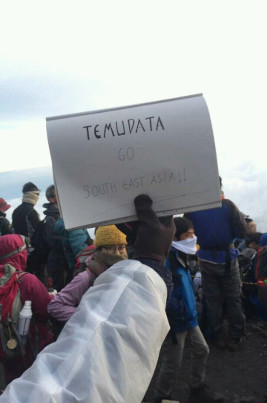 TEMUDATA
GO
SOUTH EAST ASIA!!